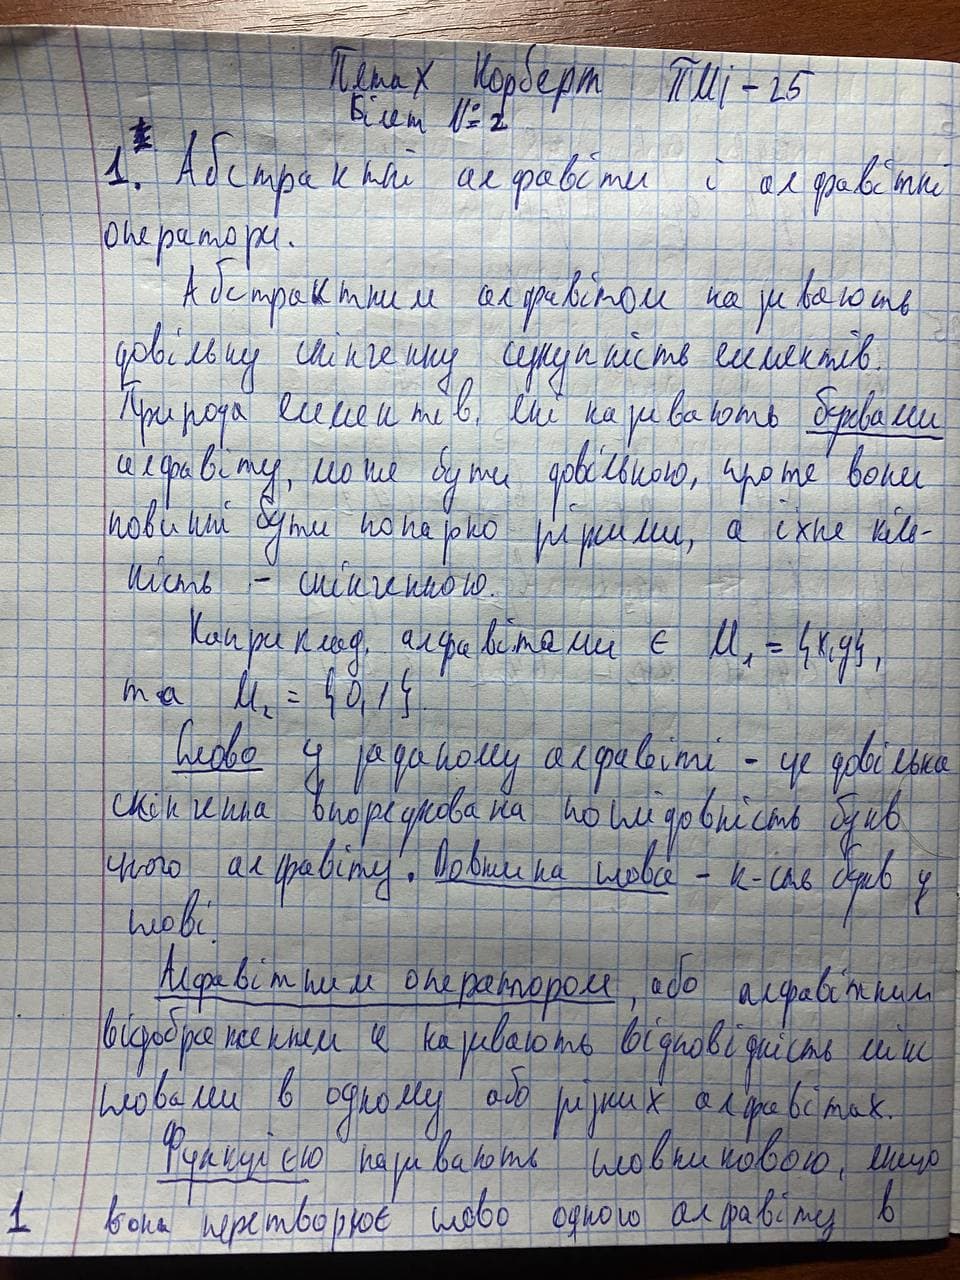 Петах Норберт ПМі-25
Білет №2
1. Абстрактні алфавіти і алфавітні
оператори.
Абстрактним алфавітом називають
довільну скінченну сукупність елементів.
Природа елементів, які називають буквами
алфавіту, може бути довільною, проте вони
повинні бути попарно різними, а їхнє кіль-
кість - скінченною.
Наприклад, алфавітами є M₁ = {x, y},
та M₂ = {0, 1}.
Слово у заданому алфавіті - це довільна
скінченна впорядкована послідовність букв
цього алфавіту. Довжина слова - к-сть букв у
слові.
Алфавітним оператором, або алфавітним
відображенням називають відповідність між
словами в одному або різних алфавітах.
Функцією називають словниковою, якщо
1 вона перетворює слово одного алфавіту в